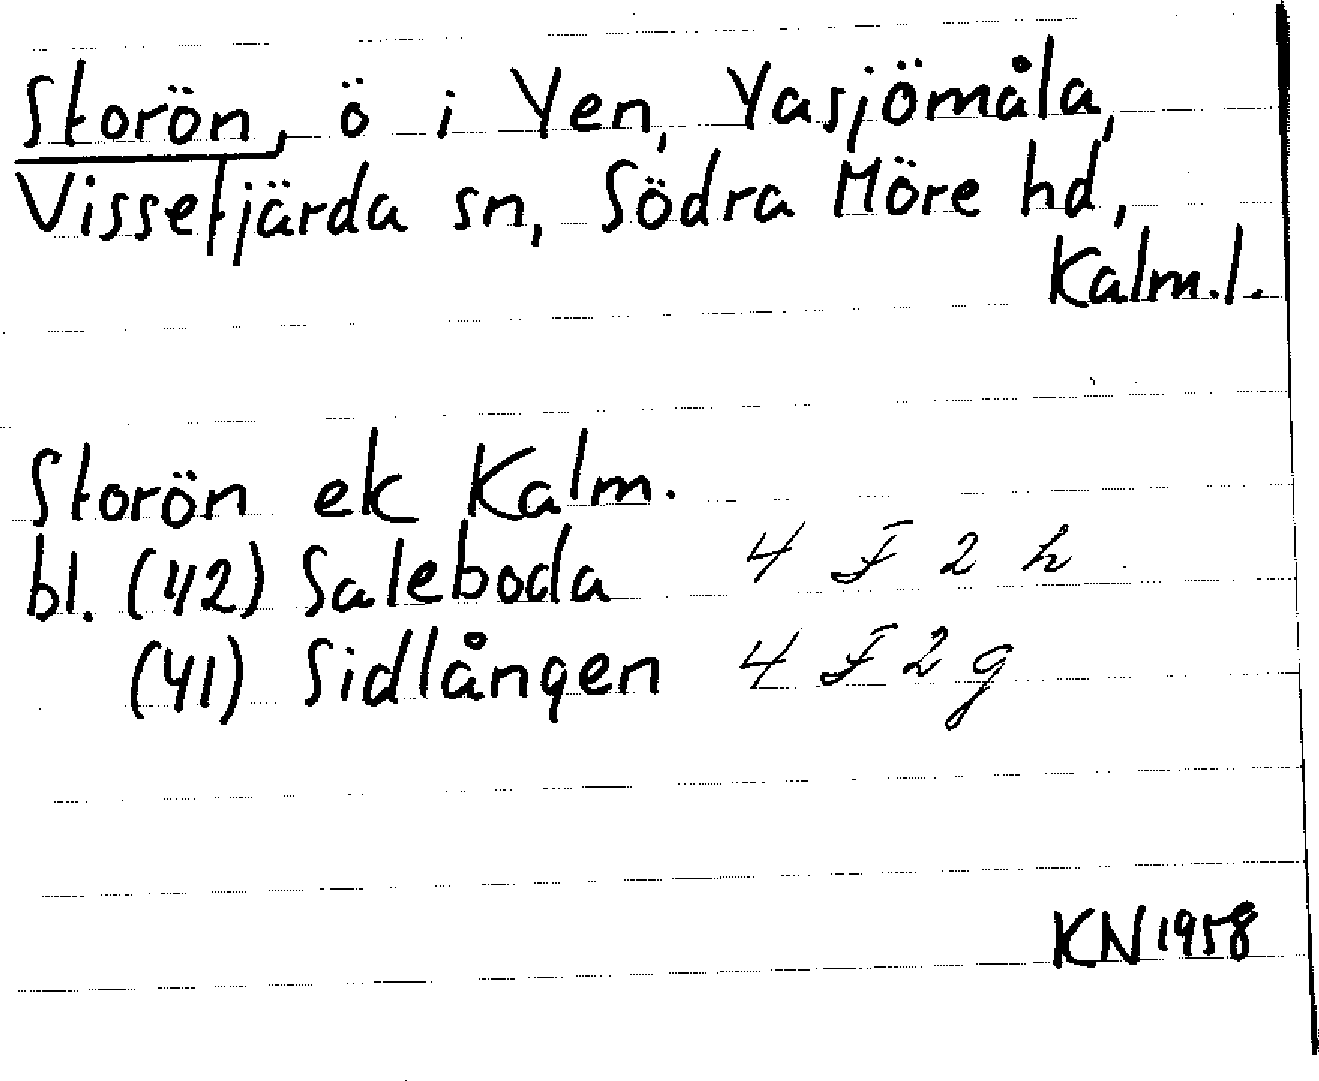 Storön, ö i Yen, Yasjömåla,
Vissefjärda sn, Södra Möre hd,
Kalm.l.
Storön ek Kalm.
bl. (42) Saleboda 4 F 2 h
(41) Sidlången 4 F 2 g
KN 1958